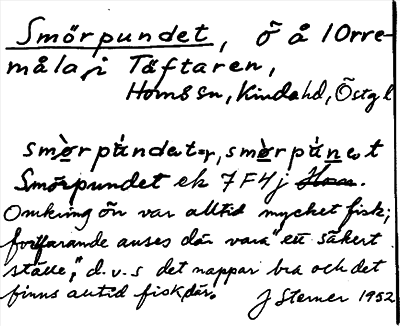 Smörpundet, ö å 10rre-
måla, i Täftaren,
Horns sn, Kinda hd, Östgl
smò̱rpán̄dæt-ər, smò̱rpáṉæt
Smörpundet ek 7F4j
Omkring ön var alltid mycket fisk;
fortfarande anses där vara "ett säkert
ställe", d.v.s det nappar bra och det
finns alltid fisk där. J Sterner 1952